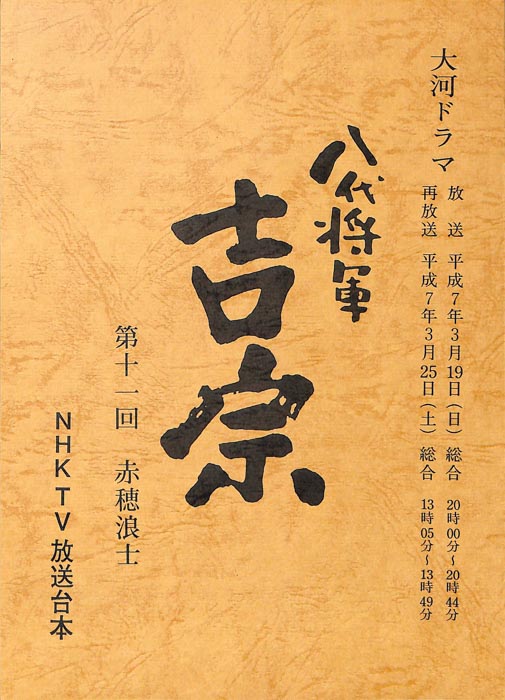 大河ドラマ
放送 平成7年3月19日(日) 総合 20時00分〜20時44分
再放送 平成7年3月25日(土) 総合 13時05分〜13時49分
八代将軍
吉宗
第十一回 赤穂浪士
NHKTV放送台本